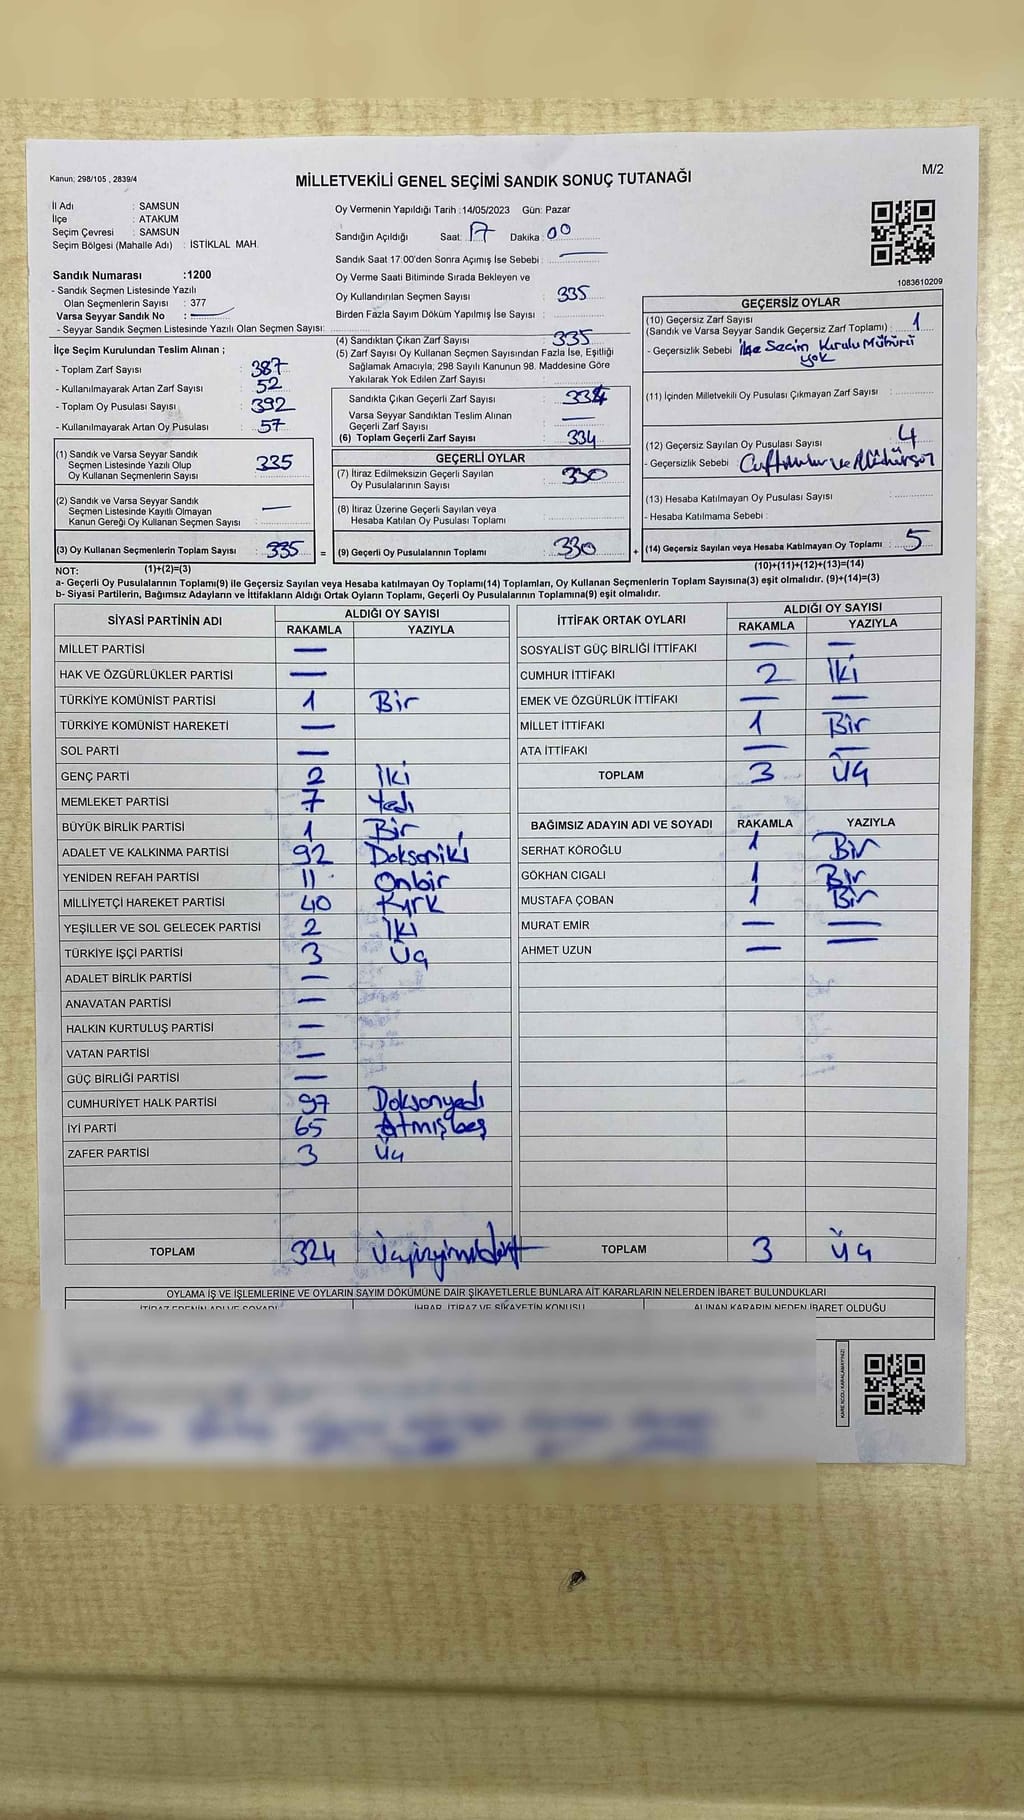 Kanun; 298/105 , 2839/4
MİLLETVEKİLİ GENEL SEÇİMİ SANDIK SONUÇ TUTANAĞI
M/2
İl Adı : SAMSUN
İlçe : ATAKUM
Seçim Çevresi : SAMSUN
Seçim Bölgesi (Mahalle Adı) : İSTİKLAL MAH.
Sandık Numarası :1200
- Sandık Seçmen Listesinde Yazılı
Olan Seçmenlerin Sayısı : 377
Varsa Seyyar Sandık No : —
- Seyyar Sandık Seçmen Listesinde Yazılı Olan Seçmen Sayısı:
Oy Vermenin Yapıldığı Tarih :14/05/2023 Gün: Pazar
Sandığın Açıldığı Saat: 17 Dakika : 00
Sandık Saat 17:00'den Sonra Açımış İse Sebebi : —
Oy Verme Saati Bitiminde Sırada Bekleyen ve
Oy Kullandırılan Seçmen Sayısı : 335
Birden Fazla Sayım Döküm Yapılmış İse Sayısı :
1083610209
İlçe Seçim Kurulundan Teslim Alınan ;
- Toplam Zarf Sayısı : 387
- Kullanılmayarak Artan Zarf Sayısı : 52
- Toplam Oy Pusulası Sayısı : 392
- Kullanılmayarak Artan Oy Pusulası : 57
(1) Sandık ve Varsa Seyyar Sandık
Seçmen Listesinde Yazılı Olup
Oy Kullanan Seçmenlerin Sayısı : 335
(2) Sandık ve Varsa Seyyar Sandık
Seçmen Listesinde Kayıtlı Olmayan
Kanun Gereği Oy Kullanan Seçmen Sayısı : —
(3) Oy Kullanan Seçmenlerin Toplam Sayısı : 335 =
(4) Sandıktan Çıkan Zarf Sayısı : 335
(5) Zarf Sayısı Oy Kullanan Seçmen Sayısından Fazla İse, Eşitliği
Sağlamak Amacıyla, 298 Sayılı Kanunun 98. Maddesine Göre
Yakılarak Yok Edilen Zarf Sayısı :
Sandıkta Çıkan Geçerli Zarf Sayısı : 334
Varsa Seyyar Sandıktan Teslim Alınan
Geçerli Zarf Sayısı : —
(6) Toplam Geçerli Zarf Sayısı : 334
GEÇERLİ OYLAR
(7) İtiraz Edilmeksizin Geçerli Sayılan
Oy Pusulalarının Sayısı : 330
(8) İtiraz Üzerine Geçerli Sayılan veya
Hesaba Katılan Oy Pusulası Toplamı :
(9) Geçerli Oy Pusulalarının Toplamı : 330 +
GEÇERSİZ OYLAR
(10) Geçersiz Zarf Sayısı
(Sandık ve Varsa Seyyar Sandık Geçersiz Zarf Toplamı) : 1
- Geçersizlik Sebebi : İlçe Seçim Kurulu Mühürü
yok
(11) İçinden Milletvekili Oy Pusulası Çıkmayan Zarf Sayısı :
(12) Geçersiz Sayılan Oy Pusulası Sayısı : 4
- Geçersizlik Sebebi :
(13) Hesaba Katılmayan Oy Pusulası Sayısı :
- Hesaba Katılmama Sebebi :
(14) Geçersiz Sayılan veya Hesaba Katılmayan Oy Toplamı : 5
NOT: (1)+(2)=(3)
(10)+(11)+(12)+(13)=(14)
a- Geçerli Oy Pusulalarının Toplamı(9) ile Geçersiz Sayılan veya Hesaba katılmayan Oy Toplamı(14) Toplamları, Oy Kullanan Seçmenlerin Toplam Sayısına(3) eşit olmalıdır. (9)+(14)=(3)
b- Siyasi Partilerin, Bağımsız Adayların ve İttifakların Aldığı Ortak Oyların Toplamı, Geçerli Oy Pusulalarının Toplamına(9) eşit olmalıdır.
SİYASİ PARTİNİN ADI ALDIĞI OY SAYISI
RAKAMLA YAZIYLA
MİLLET PARTİSİ —
HAK VE ÖZGÜRLÜKLER PARTİSİ —
TÜRKİYE KOMÜNİST PARTİSİ 1 Bir
TÜRKİYE KOMÜNİST HAREKETİ —
SOL PARTİ —
GENÇ PARTİ 2 İki
MEMLEKET PARTİSİ 7 Yedi
BÜYÜK BİRLİK PARTİSİ 1 Bir
ADALET VE KALKINMA PARTİSİ 92 Doksaniki
YENİDEN REFAH PARTİSİ 11 Onbir
MİLLİYETÇİ HAREKET PARTİSİ 40 Kırk
YEŞİLLER VE SOL GELECEK PARTİSİ 2 İki
TÜRKİYE İŞÇİ PARTİSİ 3 Üç
ADALET BİRLİK PARTİSİ —
ANAVATAN PARTİSİ —
HALKIN KURTULUŞ PARTİSİ —
VATAN PARTİSİ —
GÜÇ BİRLİĞİ PARTİSİ —
CUMHURİYET HALK PARTİSİ 97 Doksanyedi
İYİ PARTİ 65 Atmışbeş
ZAFER PARTİSİ 3 Üç
TOPLAM 324 Üçyüzyirmidört
İTTİFAK ORTAK OYLARI ALDIĞI OY SAYISI
RAKAMLA YAZIYLA
SOSYALİST GÜÇ BİRLİĞİ İTTİFAKI — —
CUMHUR İTTİFAKI 2 İki
EMEK VE ÖZGÜRLÜK İTTİFAKI — —
MİLLET İTTİFAKI 1 Bir
ATA İTTİFAKI — —
TOPLAM 3 Üç
BAĞIMSIZ ADAYIN ADI VE SOYADI RAKAMLA YAZIYLA
SERHAT KÖROĞLU 1 Bir
GÖKHAN CIGALI 1 Bir
MUSTAFA ÇOBAN 1 Bir
MURAT EMİR — —
AHMET UZUN — —
TOPLAM 3 Üç
OYLAMA İŞ VE İŞLEMLERİNE VE OYLARIN SAYIM DÖKÜMÜNE DAİR ŞİKAYETLERLE BUNLARA AİT KARARLARIN NELERDEN İBARET BULUNDUKLARI
İTİRAZ EDENİN ADI VE SOYADI İHBAR, İTİRAZ VE ŞİKAYETİN KONUSU ALINAN KARARIN NEDEN İBARET OLDUĞU